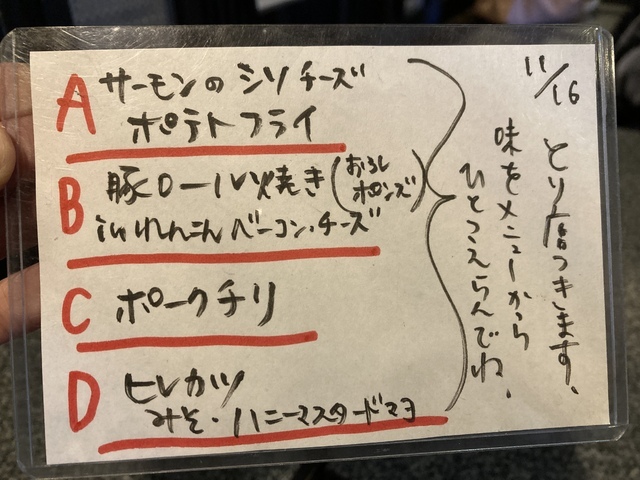 A サーモンの シソ チーズ
ポテトフライ
B 豚ロール焼き(おろしポンズ)
in れんこん ベーコン・チーズ
C ポークチリ
D ヒレカツ
みそ・ハニーマスタードマヨ
11/16
とり唐つきます、
味をメニューから
ひとつえらんでね、